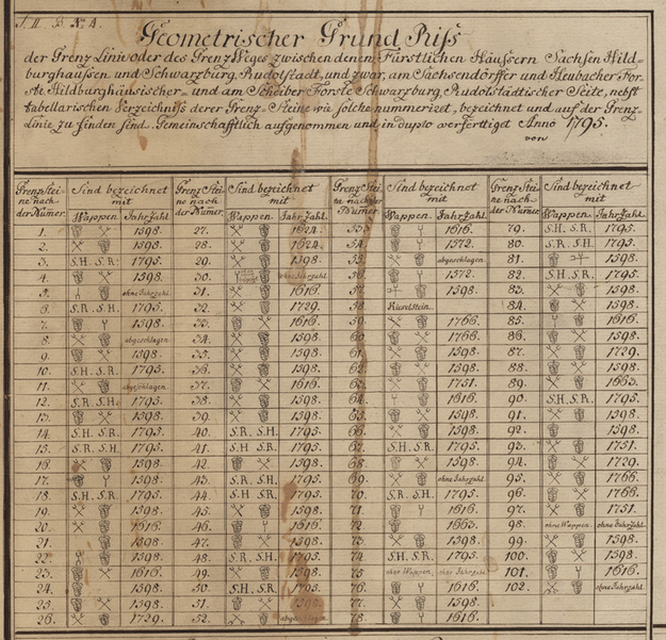 Geometrischer Grund Riß
der Grenz Linie oder des Grenz Weges zwischen denen Fürstlichen Häussern Sachsen Hild-
burghaussen und Schwarzburg Rudolstadt, und zwar, am Sachsendörffer und Heubacher For-
ste Hildburghäusischer- und am Scheiber Forste Schwarzburg Rudolstädtischer Seite, nebst
tabellarischen Verzeichniß derer Grenz-Steine wie solche nummerizet, bezeichnet und auf der Grenz-
Linie zu finden sind. Gemeinschafftlich aufgenommen und in duplo verfertiget Anno 1795.
von
Grenz Stei- Sind bezeichnet Grenz Stei- Sind bezeichnet Grenz Stei- Sind bezeichnet Grenz Stei- Sind bezeichnet
ne nach mit ne nach mit ne nach mit ne nach mit
der Numer. Wappen. Jahr Zahl. der Numer. Wappen. Jahr Zahl. der Numer. Wappen. Jahr Zahl. der Numer. Wappen. Jahr Zahl.
1. 1598. 27. 1624. 53. 1616. 79. S.H. S.R. 1795.
2. 1598. 28. 1624. 54. 1572. 80. S.R. S.H. 1795.
3. S.H. S.R. 1795. 29. 1598. 55. abgeschlagen. 81. 1598.
4. 1598. 30. ohne Jahrzahl. 56. 1572. 82. S.H. S.R. 1795.
5. ohne Jahrzahl. 31. 1616. 57. 1598. 83. 1598.
6. S.R. S.H. 1795. 32. 1729. 58. Kieselstein. 84. 1598.
7. 1598. 33. 1616. 59. 1766. 85. 1616.
8. abgeschlagen. 34. 1598. 60. 1766. 86. 1598.
9. 1598. 35. 1598. 61. 1598. 87. 1729.
10. S.H. S.R. 1795. 36. 1598. 62. 1598. 88. 1598.
11. abgeschlagen. 37. 1616. 63. 1751. 89. 1663.
12. S.R. S.H. 1795. 38. 1598. 64. 1616. 90. S.H. S.R. 1795.
13. 1598. 39. 1598. 65. 1598. 91. 1598.
14. S.H. S.R. 1795. 40. S.R. S.H. 1795. 66. 1598. 92. 1598.
15. S.R. S.H. 1795. 41. S.H. S.R. 1795. 67. S.H. S.R. 1795. 93. 1751.
16. 1598. 42. 1598. 68. 1598. 94. 1729.
17. 1598. 43. S.R. S.H. 1795. 69. ohne Jahrzahl. 95. 1766.
18. S.H. S.R. 1795. 44. S.H. S.R. 1795. 70. S.R. S.H. 1795. 96. 1766.
19. 1598. 45. 1598. 71. 1616. 97. 1751.
20. 1616. 46. 1616. 72. 1663. 98. ohne Wappen. ohne Jahrzahl.
21. 1598. 47. 1598. 73. 1598. 99. 1598.
22. 1598. 48. S.R. S.H. 1795. 74. S.H. S.R. 1795. 100. 1598.
23. 1616. 49. 1598. 75. ohne Wappen. ohne Jahrzahl. 101. 1616.
24. 1598. 50. S.H. S.R. 1795. 76. 1616. 102. ohne Jahrzahl.
25. 1598. 51. 1598. 77. 1598.
26. 1729. 52. abgeschlagen. 78. 1616.